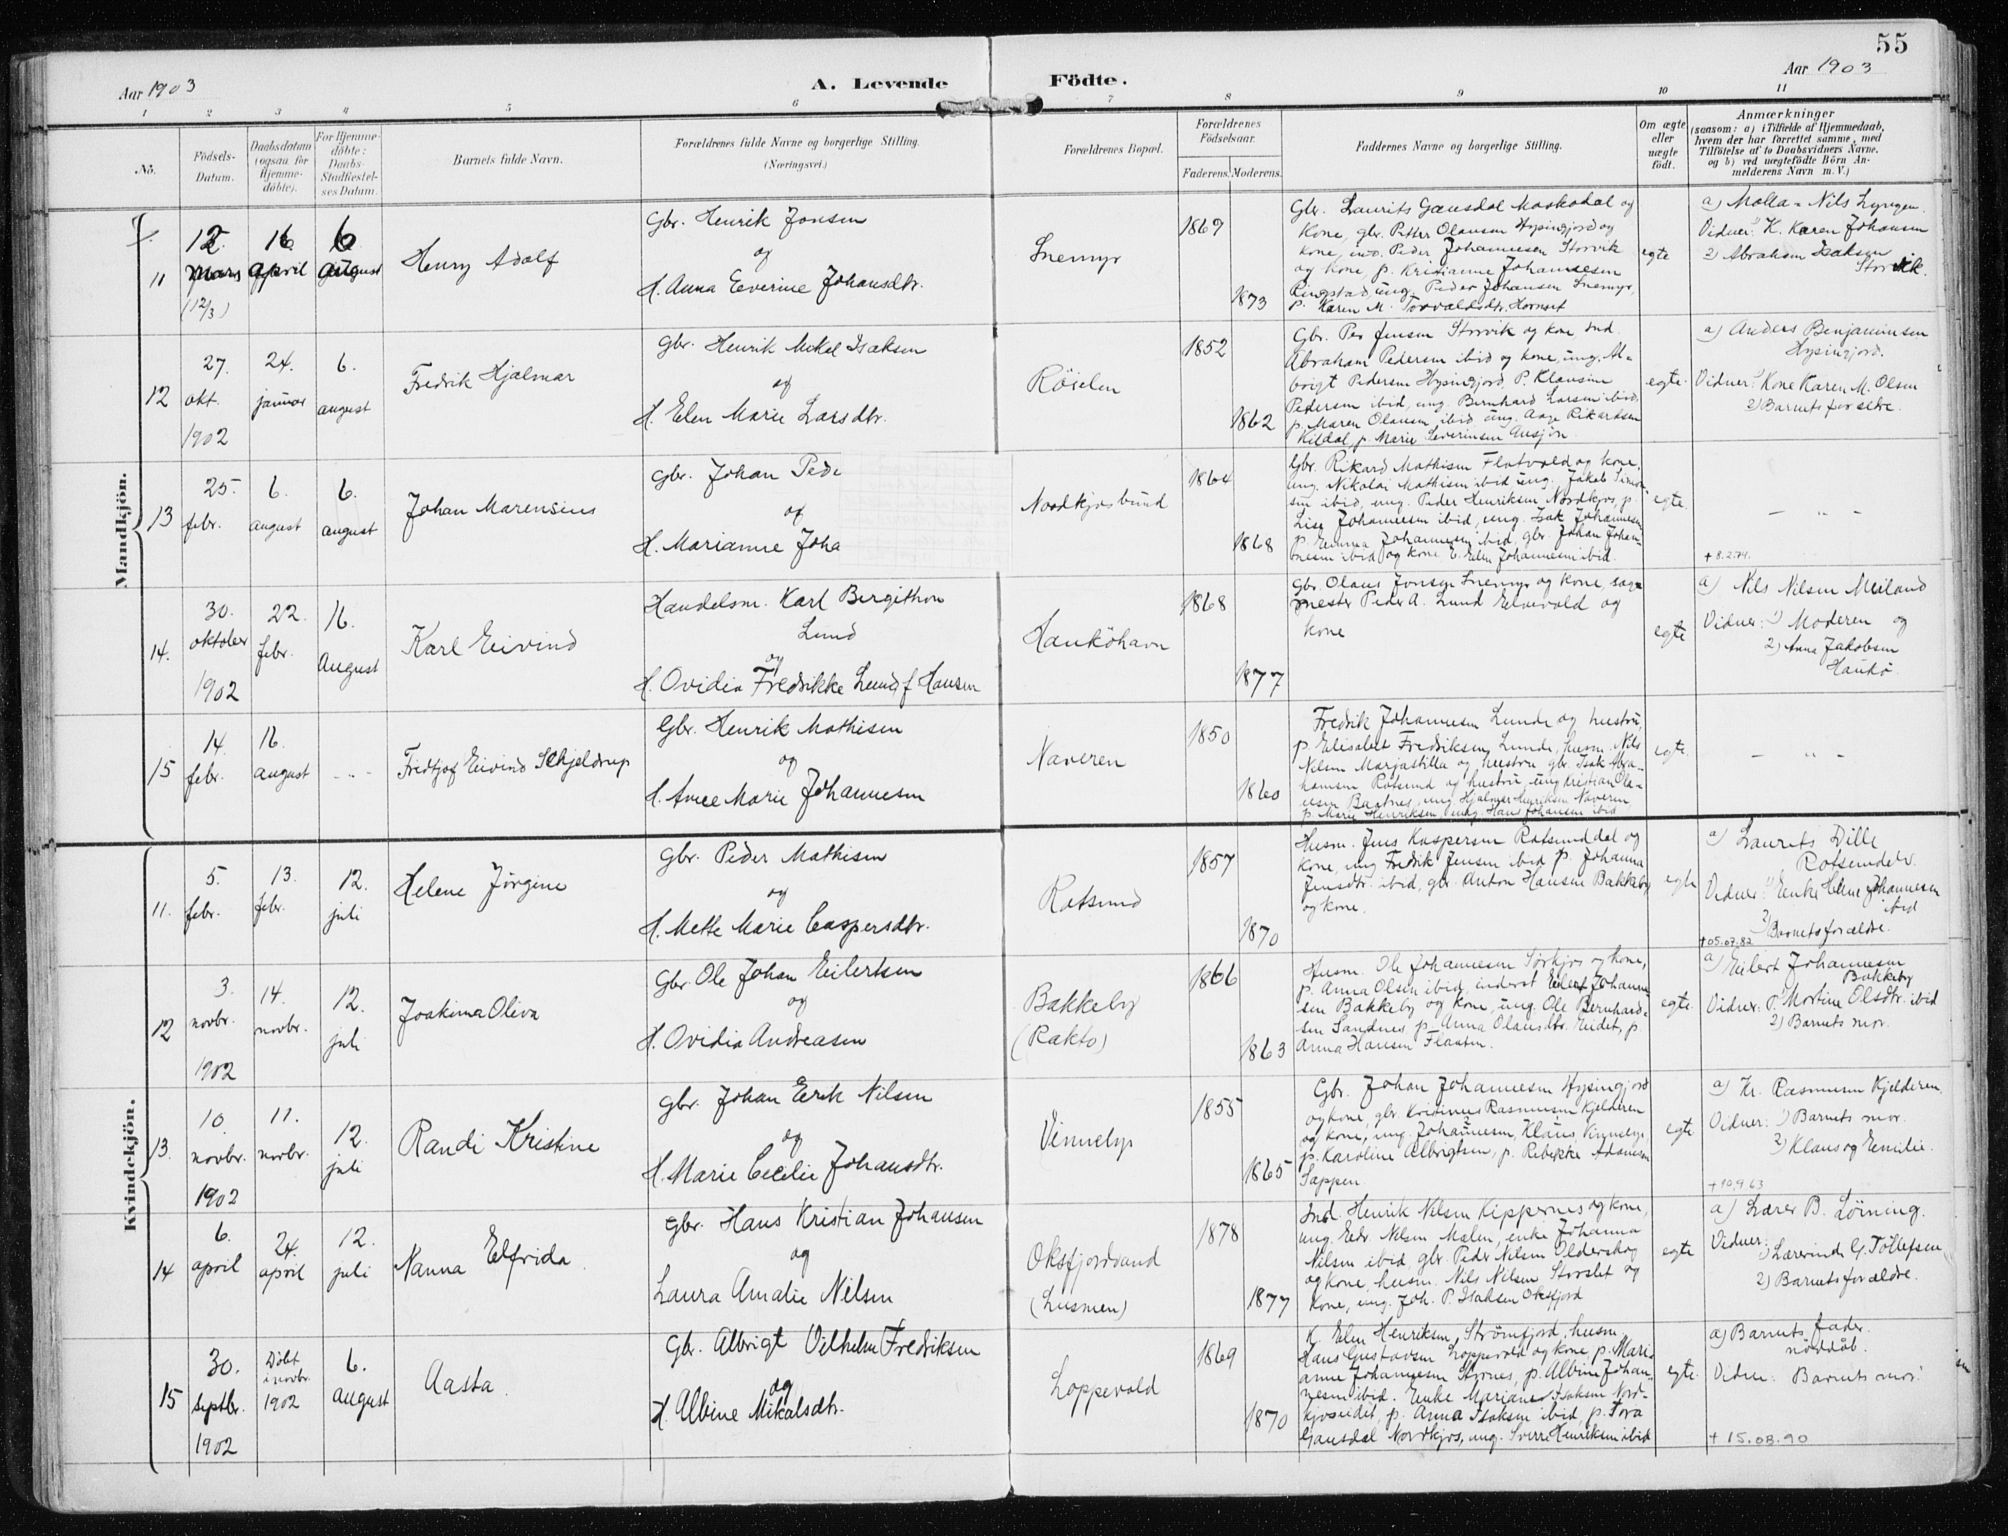 55
Aar 1903
A. Levende
Födte.
Aar 1903
1 2 3 4 5 6 7 8 9 10 11
No.
Födsels-
Datum.
Daabsdatum
(ogsaa for
Hjemme-
döbte).
For Hjemme-
döbte:
Daabs-
Stadfæstel-
ses Datum.
Barnets fulde Navn.
Forældrenes fulde Navne og borgerlige Stilling.
(Næringsvei.)
Forældrenes Bopæl.
Forældrenes
Födselsaar.
Faderens.
Moderens.
Faddernes Navne og borgerlige Stilling.
Om ægte
eller
uægte
födt.
Anmærkninger
(saasom: a) i Tilfælde af Hjemmedaab,
hvem der har forrettet samme, med
Tilföielse af to Daabsvidners Navne,
og b) ved uægtefödte Börn An-
melderens Navn m. V.)
Mandkjön.
11
12
mars
(12/3)
16
april
6
august
Henry Adolf
Gbr. Henrik Jonsen
og
H. Anna Everine Johansdtr.
Snemyr
1869
1873
Gbr. Laurits Gausdal Maskodal og
kone, gbr. Petter Olausen Hysingjord og
kone, ind. Peder Johannesen Storvik
og kone, p. Kristianne Johannesen
Ringstad, ung. Peder Johansen Snemyr,
p. Karen M. Torvaldsdtr. Hamset
egte
a) Malla-Nils Lyngen
Vidner: 1) K. Karen Johansen
2) Abraham Isaksen
Storvik.
12
27.
okt.
1902
24.
januar
6.
august
Fredrik Hjalmar
Gbr. Henrik Mikal Isaksen
og
H. Elen Marie Larsdtr.
Röielen
1852
1862
Gbr. Per Jensen Storvik og kone Ind.
Abraham Pedersen ibid og kone, ung. Al-
brigt Pedersen Hysingjord, P. Klausine
Pedersen ibid, ung. Bernhard Larsen ibid,
p. Maren Olausen ibid. ung. Aage Rikardsen
Kildal, p. Marie Severinsen
egte.
a) Anders Benjaminsen
Hysingjord.
Vidner: 1) Kone Karen M. Olsen
2) Barnets forældre.
13
25.
febr.
6.
august
6.
august
Johan Marensius
Gbr. Johan Pede
og
H. Marianne Joha
Nordkjosbund
1864
1868
Gbr. Rikard Mathisen Flatvold og kone,
ung. Nikolai Mathisen ibid ung. Jakob Simon-
sen ibid, ung. Peder Henriksen Nordkjos, p.
Lise Johannesen ibid, ung. Isak Johannesen
p. Emma Johannesen ibid, gbr. Johan Johan-
nesen ibid og kone E. Elen Johannesen ibid.
egte.
— „ —
+ 8.2.74.
14.
30.
oktober
1902
22.
febr.
16.
August
Karl Eivind
Handelsm. Karl Bergithon
Lund
og
H. Ovidia Fredrikke Lund f. Hansen
Hauköhavn
1868
1877
Gbr. Olaus Jonsen Snemyr og kone, sag-
mester Peder A. Lund Elvevold og
kone
egte
a) Nils Nilsen Meiland
Vidner: 1) Moderen og
2) Anna Jakobsen
Haukö.
15
14.
febr.
16.
august
- „ -
Fridtjof Eivind Schjeldrup
Gbr. Henrik Mathisen
og
H. Anne Marie Johannesen
Naveren
1850
1860
Fredrik Johannesen Lunde og hustru,
p. Elisabet Fredriksen, Lunde, husm. Nils
Nilsen Marjastilla og hustru gbr. Isak Abra-
hamsen Rotsund og hustru, ung Kristian Ola-
usen Baatnes, ung. Hjalmar Henriksen Naveren
p. Marie Henriksen ung. Hans Johansen ibid
egte.
— „ —
Kvindekjön.
11.
5.
febr.
13.
febr.
12.
juli
Helene Jørgine
Gbr. Peder Mathisen
og
H. Mette Marie Caspersdtr.
Rotsund
1857
1870
Husm. Jens Kaspersen Rotsunddal og
kone, ung Fredrik Jensen ibid p. Johanna
Jensdtr. ibid, gbr. Anton Hansen Bakkeby
og kone.
egte
a) Laurits Dille
Rotsundelv.
Vidner: 1) Enke Helene Johannesen
ibid
2) Barnets forældre.
+ 05.07.82
12
3.
novbr.
1902
14.
novbr.
12.
juli
Joakima Oliva
Gbr. Ole Johan Eilertsen
og
H. Ovidia Andreasen
Bakkeby
(Rakto)
1866
1863
Husm. Ole Johannesen Sørkjos og kone,
p. Anna Olsen ibid, inderst Eilert Johanne-
sen Bakkeby og kone, ung. Ole Bernhard-
sen Sandnes, p. Anna Olausdtr. Eidet, p
Anna Hansen Flaaten.
egte.
a) Eilert Johannesen
Bakkeby
Vidner: P. Mortine Olsdtr. ibid
2) Barnets mor.
13.
10.
novbr.
1902
11.
novbr.
12.
juli
Randi Kristine
Gbr. Johan Erik Nilsen
og
H. Marie Cecilie Johansdtr.
Vinnelys
1855
1865
Gbr. Johan Johannesen Hysingjord
og kone, gbr. Kristinus Rasmussen Kjelderen
og kone, ung. Johannesen, Klaus Vinnelys
p. Karoline Albrigtsen, p. Rebekke Adamsen
Sappen.
egte
a) Kr. Rasmussen Kjelderen.
Vidner: 1) Barnets mor.
2) Klaus og Emilie.
+ 10.9.63
14
6.
april
24.
april
12.
juli
Nanna Elfrida.
Gbr. Hans Kristian Johansen
og
Laura Amalie Nilsen
Oksfjordvand
(Lusmen)
1878
1877
Ind. Henrik Nilsen Kippernes og kone,
ung. Edv. Nilsen Malen, enke Johanna
Nilsen ibid, gbr. Peder Nilsen Olderskog
og kone, husm. Nils Nilsen Storslet og
kone, ung. Joh. P. Isaksen Oksfjord
egte
a) Lærer B. Löining.
Vidner:
1) Lærerinde G. Tollefsen
2) Barnets forældre.
15
30.
septbr.
1902
Döbt
i novbr.
1902
6.
august
Aasta.
Gbr. Albrigt Vilhelm Fredriksen
og
H. Albine Mikalsdtr.
Loppevold
1869
1870
K. Elen Henriksen, Strømfjord, husm.
Hans Gustavsen Loppevold og kone p. Mari-
anne Johannesen Stornes, p. Albine Johan-
nesen ibid. Enke Mariane Isaksen Nord-
kjoseidet, p. Anna Isaksen ibid, p. Tora
Gausdal Nordkjos, ung. Sverre Henriksen ibid
egte.
a) Barnets fader.
nöddåb.
Vidne: Barnets mor.
+ 15.03.90